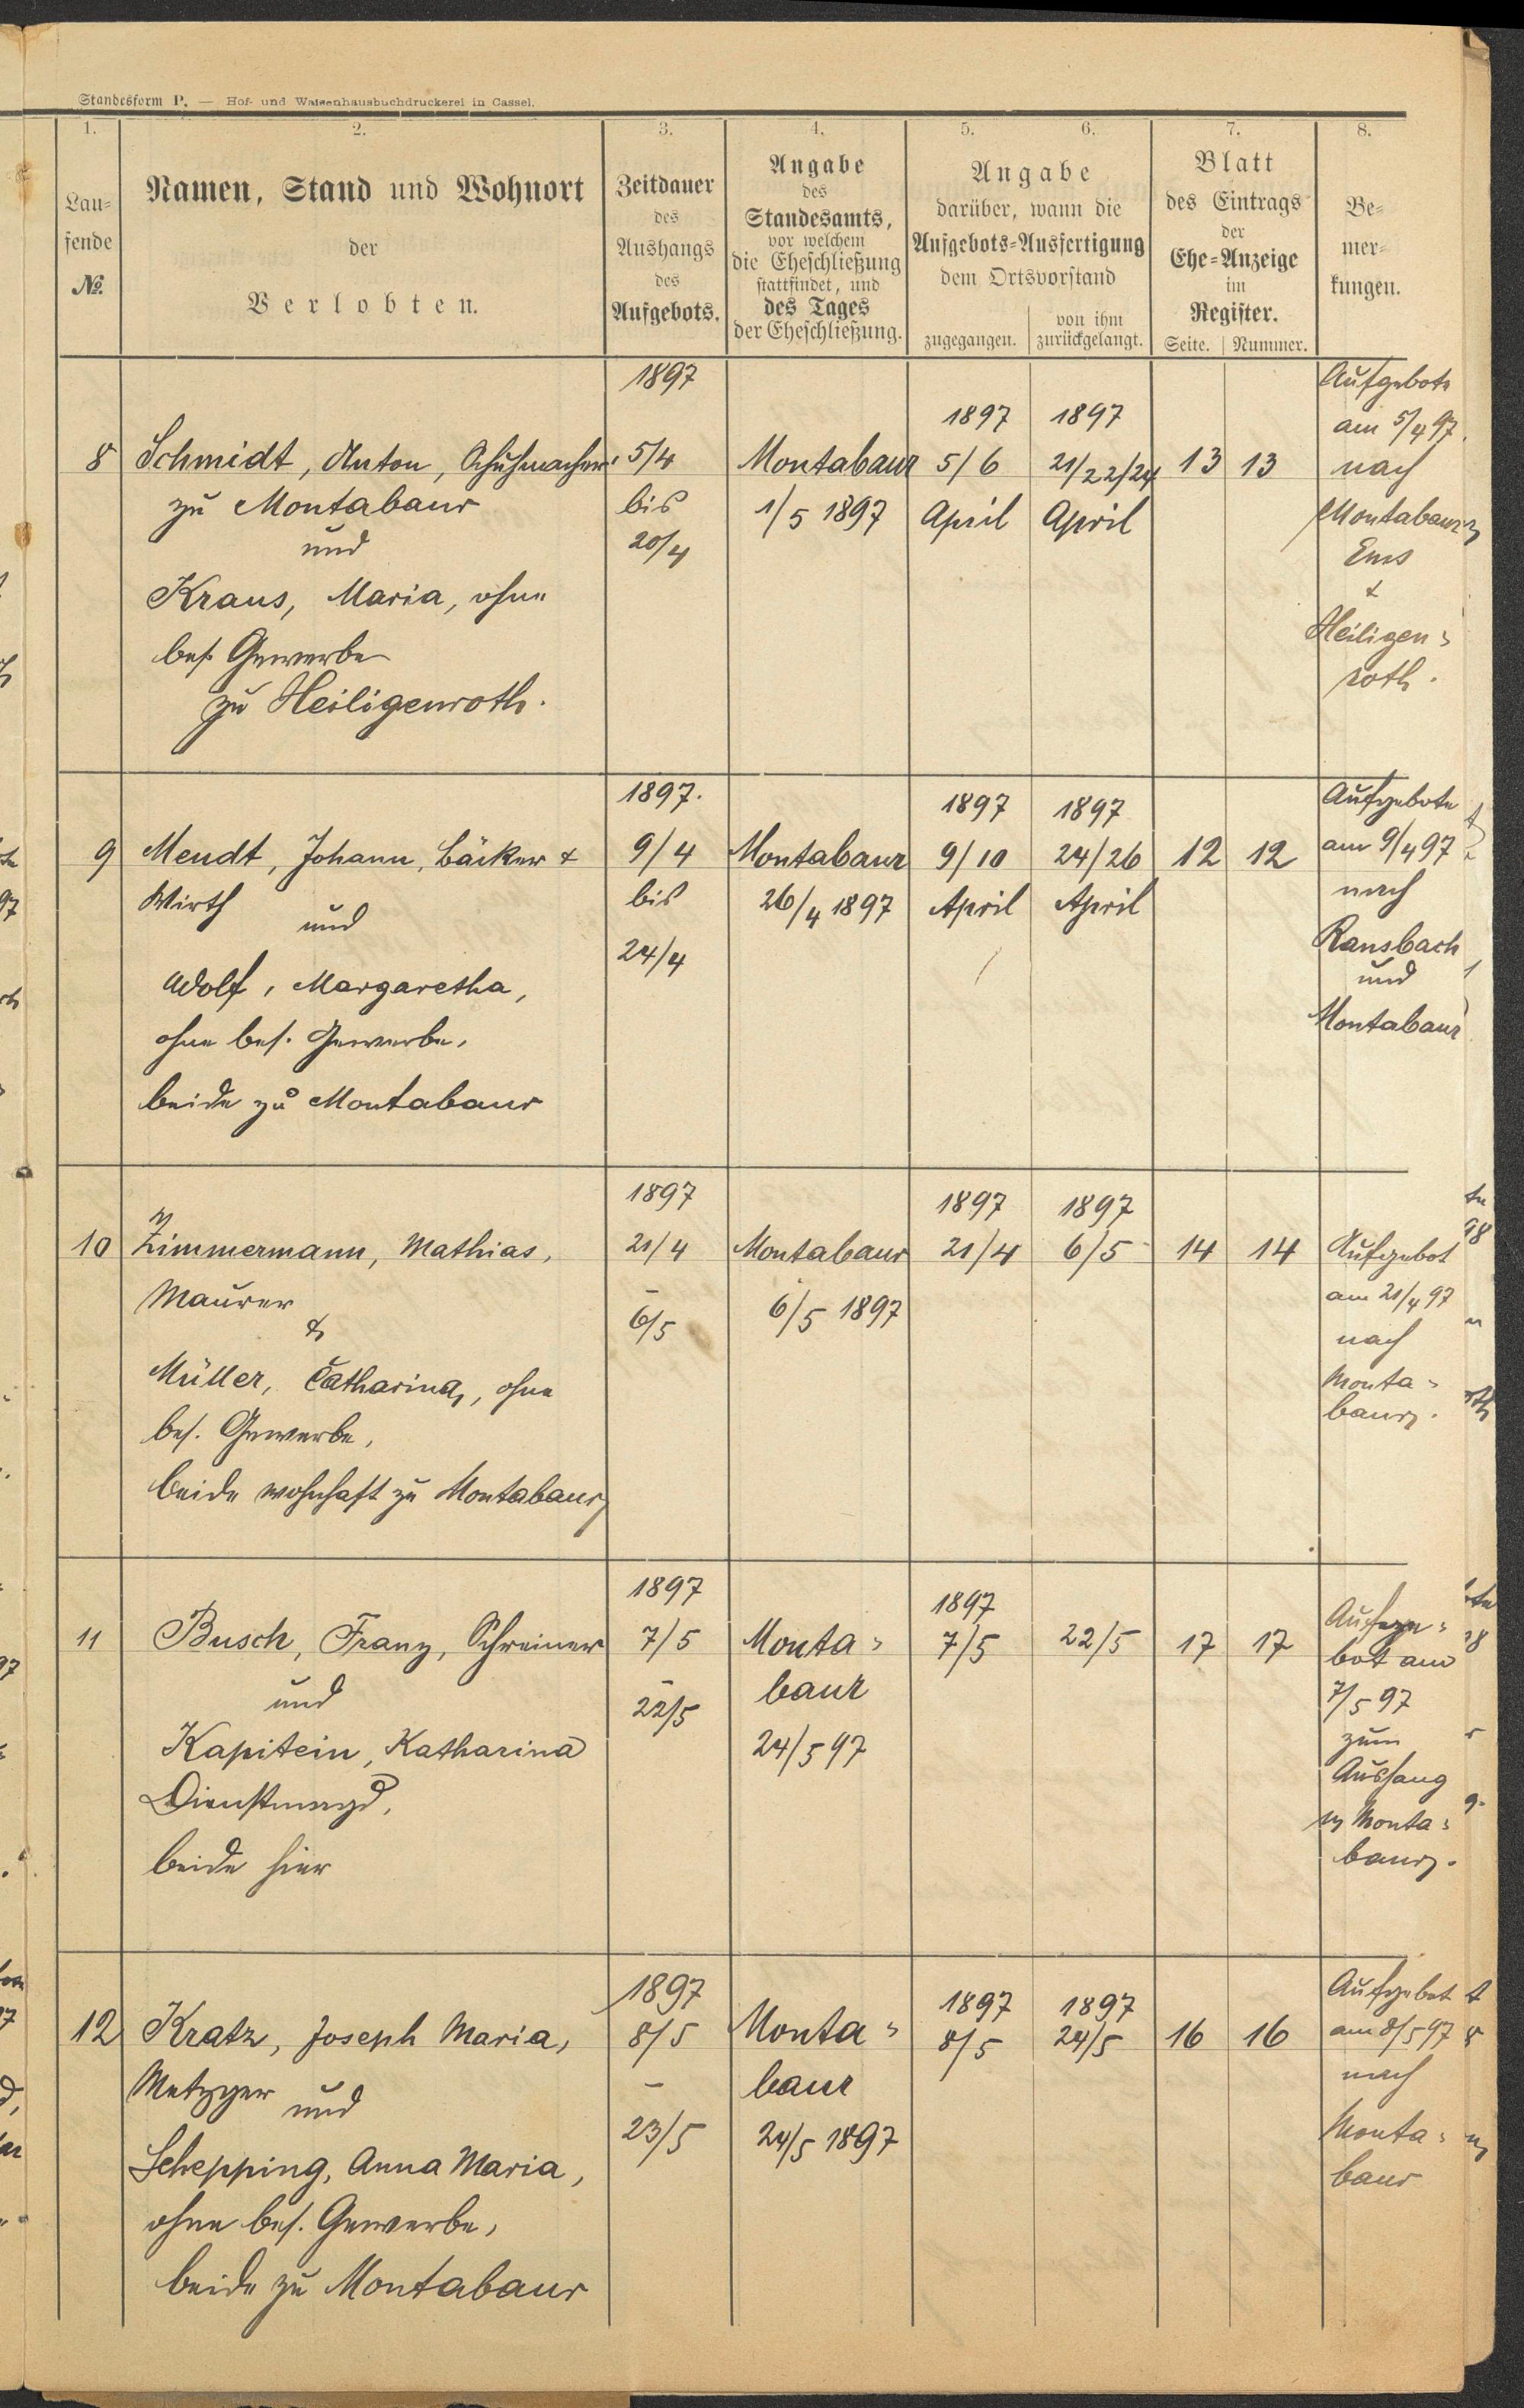 Standesform P. — Hof- und Waisenhausbuchdruckerei in Cassel.
1. 2. 3. 4. 5. 6. 7. 8.
Lau-
fende
No.
Namen, Stand und Wohnort
der
Verlobten.
Zeitdauer
des
Aushangs
des
Aufgebots.
Angabe
des
Standesamts,
vor welchem
die Eheschließung
stattfindet, und
des Tages
der Eheschließung.
Angabe
darüber, wann die
Aufgebots-Ausfertigung
dem Ortsvorstand
zugegangen.
von ihm
zurückgelangt.
Blatt
des Eintrags
der
Ehe-Anzeige
im
Register.
Seite. Nummer.
Be-
mer-
kungen.
8
Schmidt, Anton, Schuhmacher
zu Montabaur
und
Kraus, Maria, ohne
bes. Gewerbe
zu Heiligenroth.
1897
5/4
bis
20/4
Montabaur
1/5 1897
1897
5/6
April
1897
21/22/24
April
13 13
Aufgebote
am 5/4 97.
nach
Montabaur,
Ems
&
Heiligen-
roth.
9
Mendt, Johann, Bäcker &
Wirth
und
Adolf, Margaretha,
ohne bes. Gewerbe,
beide zu Montabaur
1897.
9/4
bis
24/4
Montabaur
26/4 1897
1897
9/10
April
1897
24/26
April
12 12
Aufgebote
am 9/4 97
nach
Ransbach
und
Montabaur
10
Zimmermann, Mathias,
Maurer
&
Müller, Catharina, ohne
bes. Gewerbe,
beide wohnhaft zu Montabaur
1897
21/4
-
6/5
Montabaur
6/5 1897
1897
21/4
1897
6/5
14 14
Aufgebot
am 21/4 97
nach
Monta-
baur.
11
Busch, Franz, Schreiner
und
Kapitein, Katharina
Dienstmagd,
beide hier
1897
7/5
-
22/5
Monta-
baur
24/5 97
1897
7/5
22/5
17 17
Aufge-
bot am
7/5 97
zum
Aushang
in Monta-
baur.
12
Kratz, Joseph Maria,
Metzger
und
Schepping, Anna Maria,
ohne bes. Gewerbe,
beide zu Montabaur
1897
8/5
-
23/5
Monta-
baur
24/5 1897
1897
8/5
1897
24/5
16 16
Aufgebot
am 8/5 97
nach
Monta-
baur